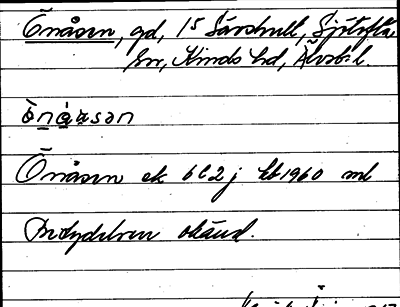 Önåsen, gd, 15 Särshult, Sjötofta
sn, Kinds hd, Älvsb. l.
ö̀nå̀asən
Önåsen ek 6C2j kb 1960 ml
Betydelsen okänd.